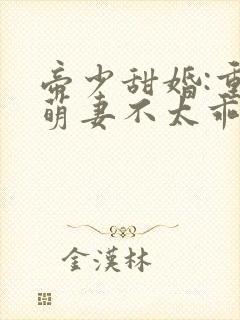 帝少甜婚:重
萌妻不太乖
金漢林